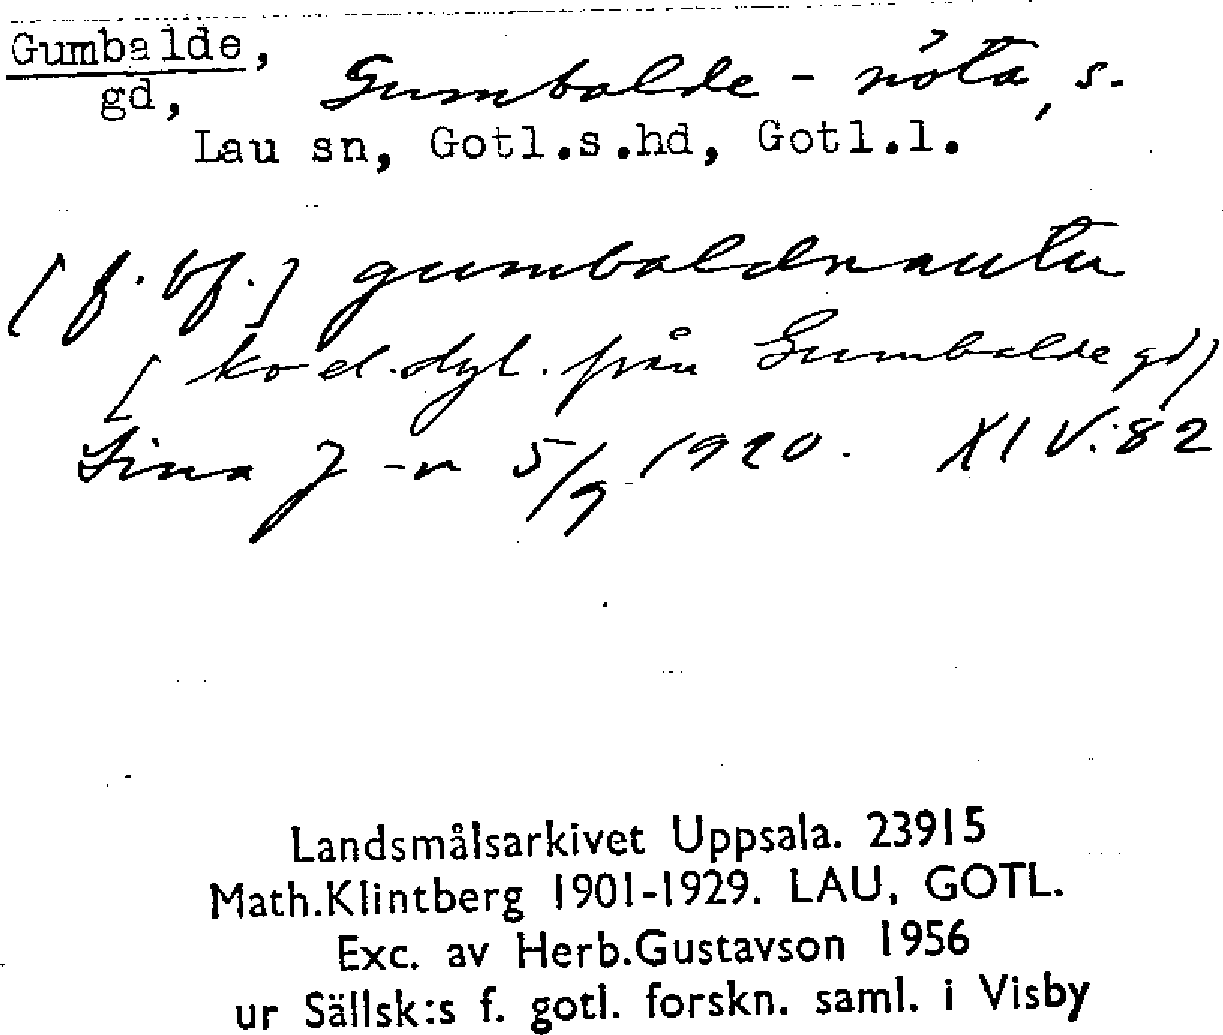 Gumbalde, Gumbalde-nöta, s.
gd,
Lau sn, Gotl.s.hd, Gotl.l.
[f. bf.] gumbaldnautu
[ko el. dyl. från Gumbalde gd]
Lina J-n 5/9 1920. XIV:82
Landsmålsarkivet Uppsala. 23915
Math.Klintberg 1901-1929. LAU, GOTL.
Exc. av Herb.Gustavson 1956
ur Sällsk:s f. gotl. forskn. saml. i Visby